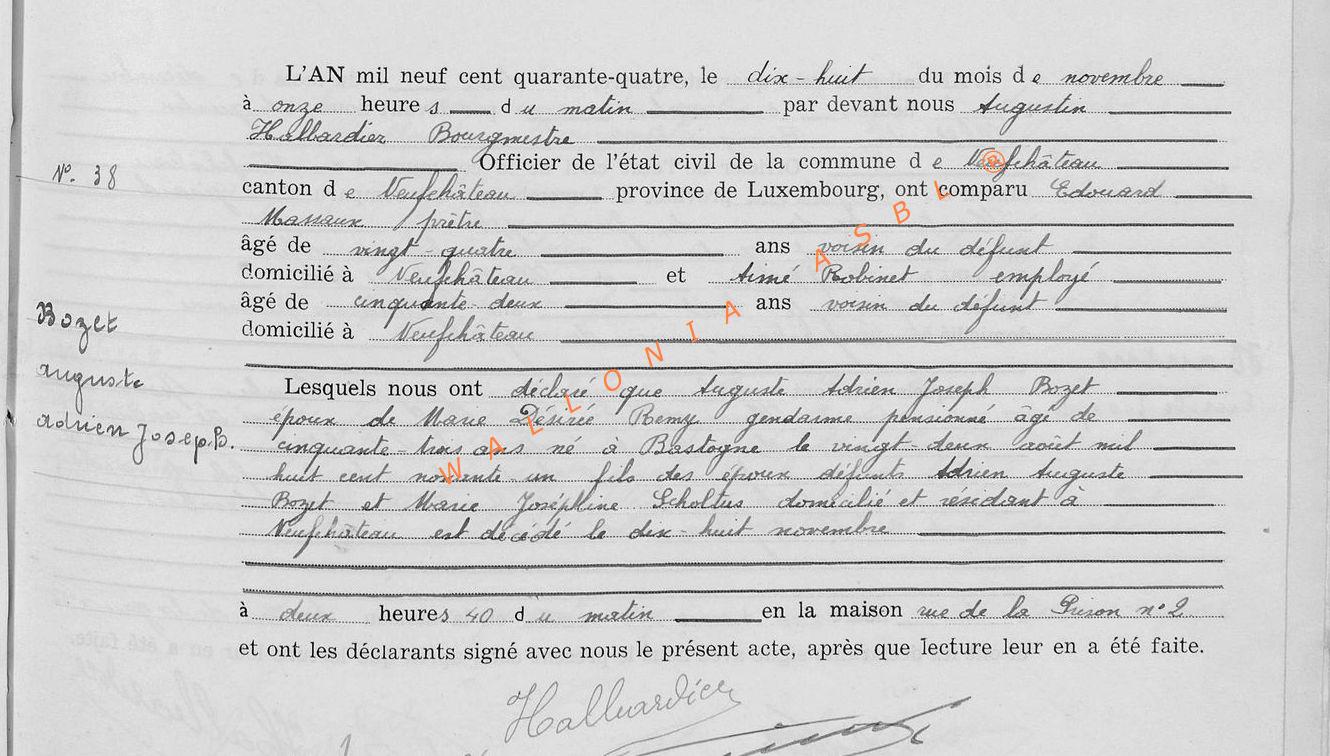 L'AN mil neuf cent quarante-quatre, le dix-huit du mois de novembre
à onze heures du matin par devant nous Augustin
Hallbardier Bourgmestre
Officier de l'état civil de la commune de Neufchâteau
N°. 38
canton de Neufchâteau province de Luxembourg, ont comparu Edouard
Massaux prêtre
âgé de vingt-quatre ans voisin du défunt
domicilié à Neufchâteau et Aimé Robinet employé
âgé de cinquante-deux ans voisin du défunt
domicilié à Neufchâteau
Bozet
auguste
adrien Joseph.
Lesquels nous ont déclaré que Auguste Adrien Joseph Bozet
époux de Marie Désirée Remy gendarme pensionné âgé de
cinquante-trois ans né à Bastogne le vingt-deux août mil
huit cent nonante-un fils des époux défunts Adrien Auguste
Bozet et Marie Joséphine Scholtus domicilié et résidant à
Neufchâteau est décédé le dix-huit novembre
à deux heures 40 du matin en la maison rue de la Prison n° 2
et ont les déclarants signé avec nous le présent acte, après que lecture leur en a été faite.
WALLONIA ASBL ®